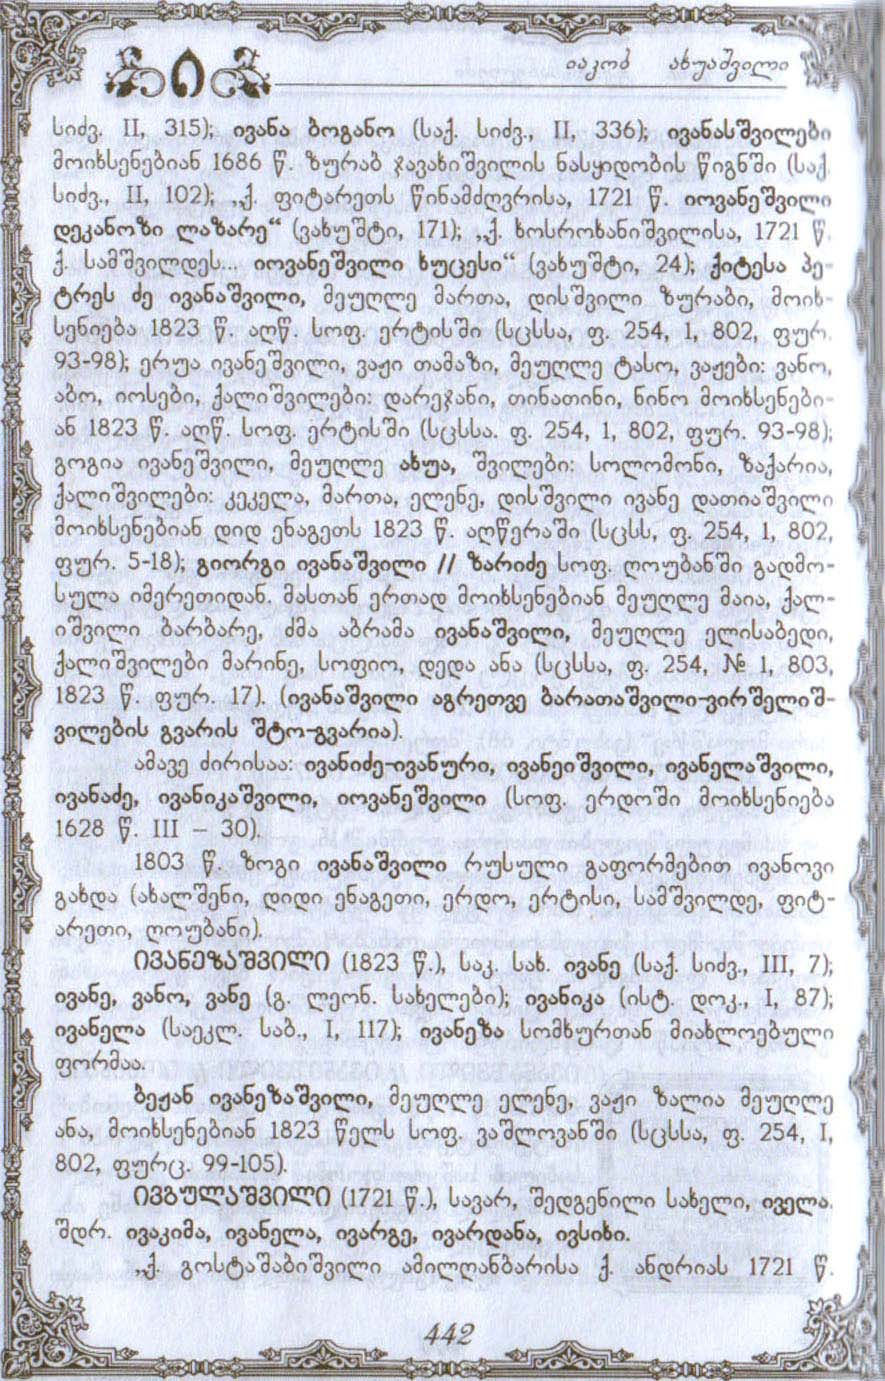 ი
იაკობ ახუაშვილი
სიძვ. II, 315); ივანა ბოგანო (საქ. სიძვ., II, 336); ივანასშვილები
მოიხსენებიან 1686 წ. ზურაბ ჯავახიშვილის ნასყიდობის წიგნში (საქ.
სიძვ., II, 102); „ქ. ფიტარეთს წინამძღვრისა, 1721 წ. იოვანეშვილი
დეკანოზი ლაზარე“ (ვახუშტი, 171); „ქ. ხოსროხანიშვილისა, 1721 წ.
ქ. სამშვილდეს... იოვანეშვილი ხუცესი“ (ვახუშტი, 24); ქიტესა პე-
ტრეს ძე ივანაშვილი, მეუღლე მართა, დისშვილი ზურაბი, მოიხ-
სენიება 1823 წ. აღწ. სოფ. ერტისში (სცსსა, ფ. 254, 1, 802, ფურ.
93-98); ერუა ივანეშვილი, ვაჟი თამაზი, მეუღლე ტასო, ვაჟები: ვანო,
აბო, იოსები, ქალიშვილები: დარეჯანი, თინათინი, ნინო მოიხსენები-
ან 1823 წ. აღწ. სოფ. ერტისში (სცსსა. ფ. 254, 1, 802, ფურ. 93-98);
გოგია ივანეშვილი, მეუღლე ახუა, შვილები: სოლომონი, ზაქარია,
ქალიშვილები: კეკელა, მართა, ელენე, დისშვილი ივანე დათიაშვილი
მოიხსენებიან დიდ ენაგეთს 1823 წ. აღწერაში (სცსს, ფ. 254, 1, 802,
ფურ. 5-18); გიორგი ივანაშვილი // ზარიძე სოფ. ღოუბანში გადმო-
სულა იმერეთიდან. მასთან ერთად მოიხსენებიან მეუღლე მაია, ქალ-
იშვილი ბარბარე, ძმა აბრამა ივანაშვილი, მეუღლე ელისაბედი,
ქალიშვილები მარინე, სოფიო, დედა ანა (სცსსა, ფ. 254, № 1, 803,
1823 წ. ფურ. 17). (ივანაშვილი აგრეთვე ბარათაშვილი-ვირშელიშ-
ვილების გვარის შტო-გვარია).
ამავე ძირისაა: ივანიძე-ივანური, ივანეიშვილი, ივანელაშვილი,
ივანაძე, ივანიკაშვილი, იოვანეშვილი (სოფ. ერდოში მოიხსენიება
1628 წ. III – 30).
1803 წ. ზოგი ივანაშვილი რუსული გაფორმებით ივანოვი
გახდა (ახალშენი, დიდი ენაგეთი, ერდო, ერტისი, სამშვილდე, ფიტ-
არეთი, ღოუბანი).
ივანეზაშვილი (1823 წ.), საკ. სახ. ივანე (საქ. სიძვ., III, 7);
ივანე, ვანო, ვანე (გ. ლეონ. სახელები); ივანიკა (ისტ. დოკ., I, 87);
ივანელა (საეკლ. საბ., I, 117); ივანეზა სომხურთან მიახლოებული
ფორმაა.
ბეჟან ივანეზაშვილი, მეუღლე ელენე, ვაჟი ზალია მეუღლე
ანა, მოიხსენებიან 1823 წელს სოფ. ვაშლოვანში (სცსსა, ფ. 254, I,
802, ფურც. 99-105).
ივბულაშვილი (1721 წ.), სავარ, შედგენილი სახელი, იველა.
შდრ. ივაკიმა, ივანელა, ივარგე, ივარდანა, ივსიხი.
„ქ. გოსტაშაბიშვილი ამილღანბარისა ქ. ანდრიას 1721 წ.
442